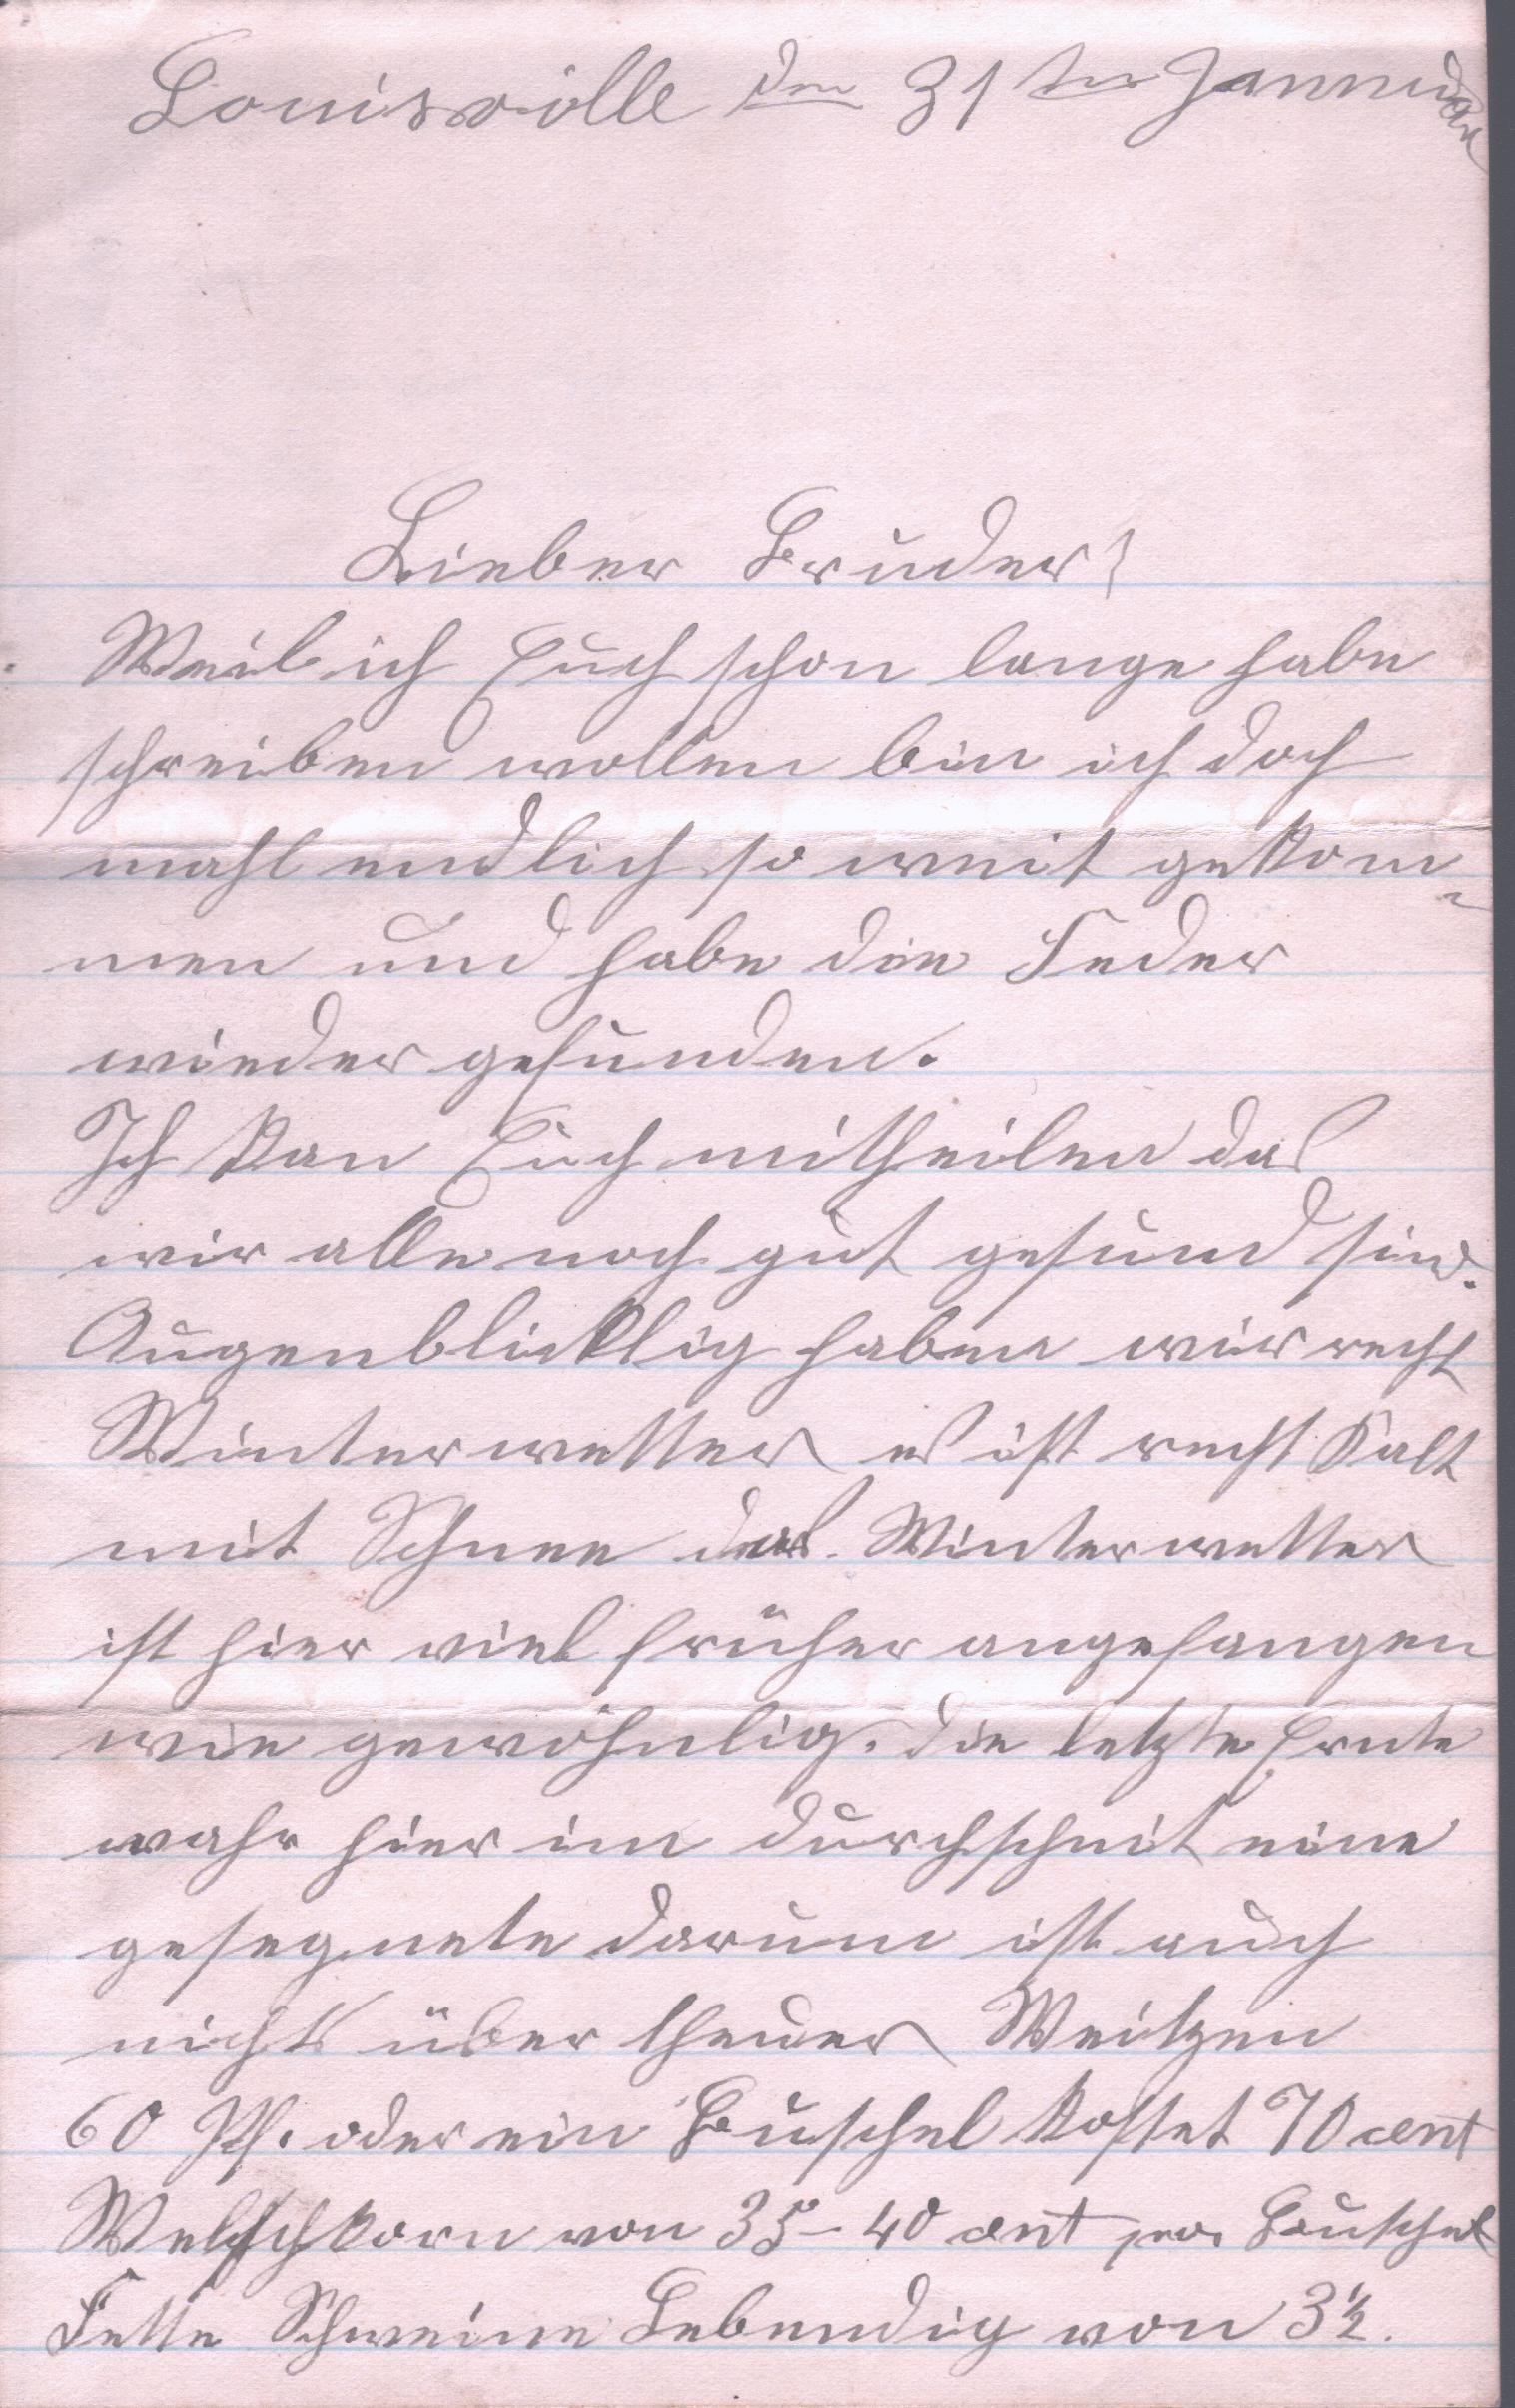 Louisville den 31ten Januar
Lieber Bruder!
Weil ich Euch schon lange habe
schreiben wollen bin ich doch
mahl endlich so weit gekom-
men und habe die Feder
wieder gefunden.
Ich kan Euch mittheilen das
wir alle noch gut gesund sind.
Augenblicklig haben wir recht
Winterwetter es ist recht kalt
mit Schnee das Winterwetter
ist hier viel früher angefangen
wie gewöhnlig. die letzte Ernte
wahr hier im durchschnit eine
gesegnete darum ist auch
nichts über theuer Weitzen
60 Pf. oder ein Buschel kostet 70 cent
Welschkorn von 35-40 cent per Buschel
Fette Schweine Lebendig von 3½.